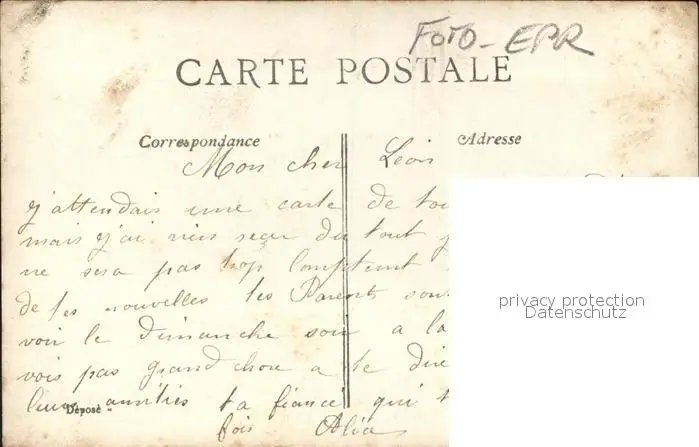 Foto - EPR
CARTE POSTALE
Correspondance
Adresse
Mon cher Léon
j'attendais une carte de
mais j'ai rien reçu du tout
ne sera pas trop
de tes nouvelles tes Parents sont
voir le Dimanche soir a la
vois pas grand chose a te dire
amitiés ta fiancé qui
Déposé
fois
privacy protection
Datenschutz